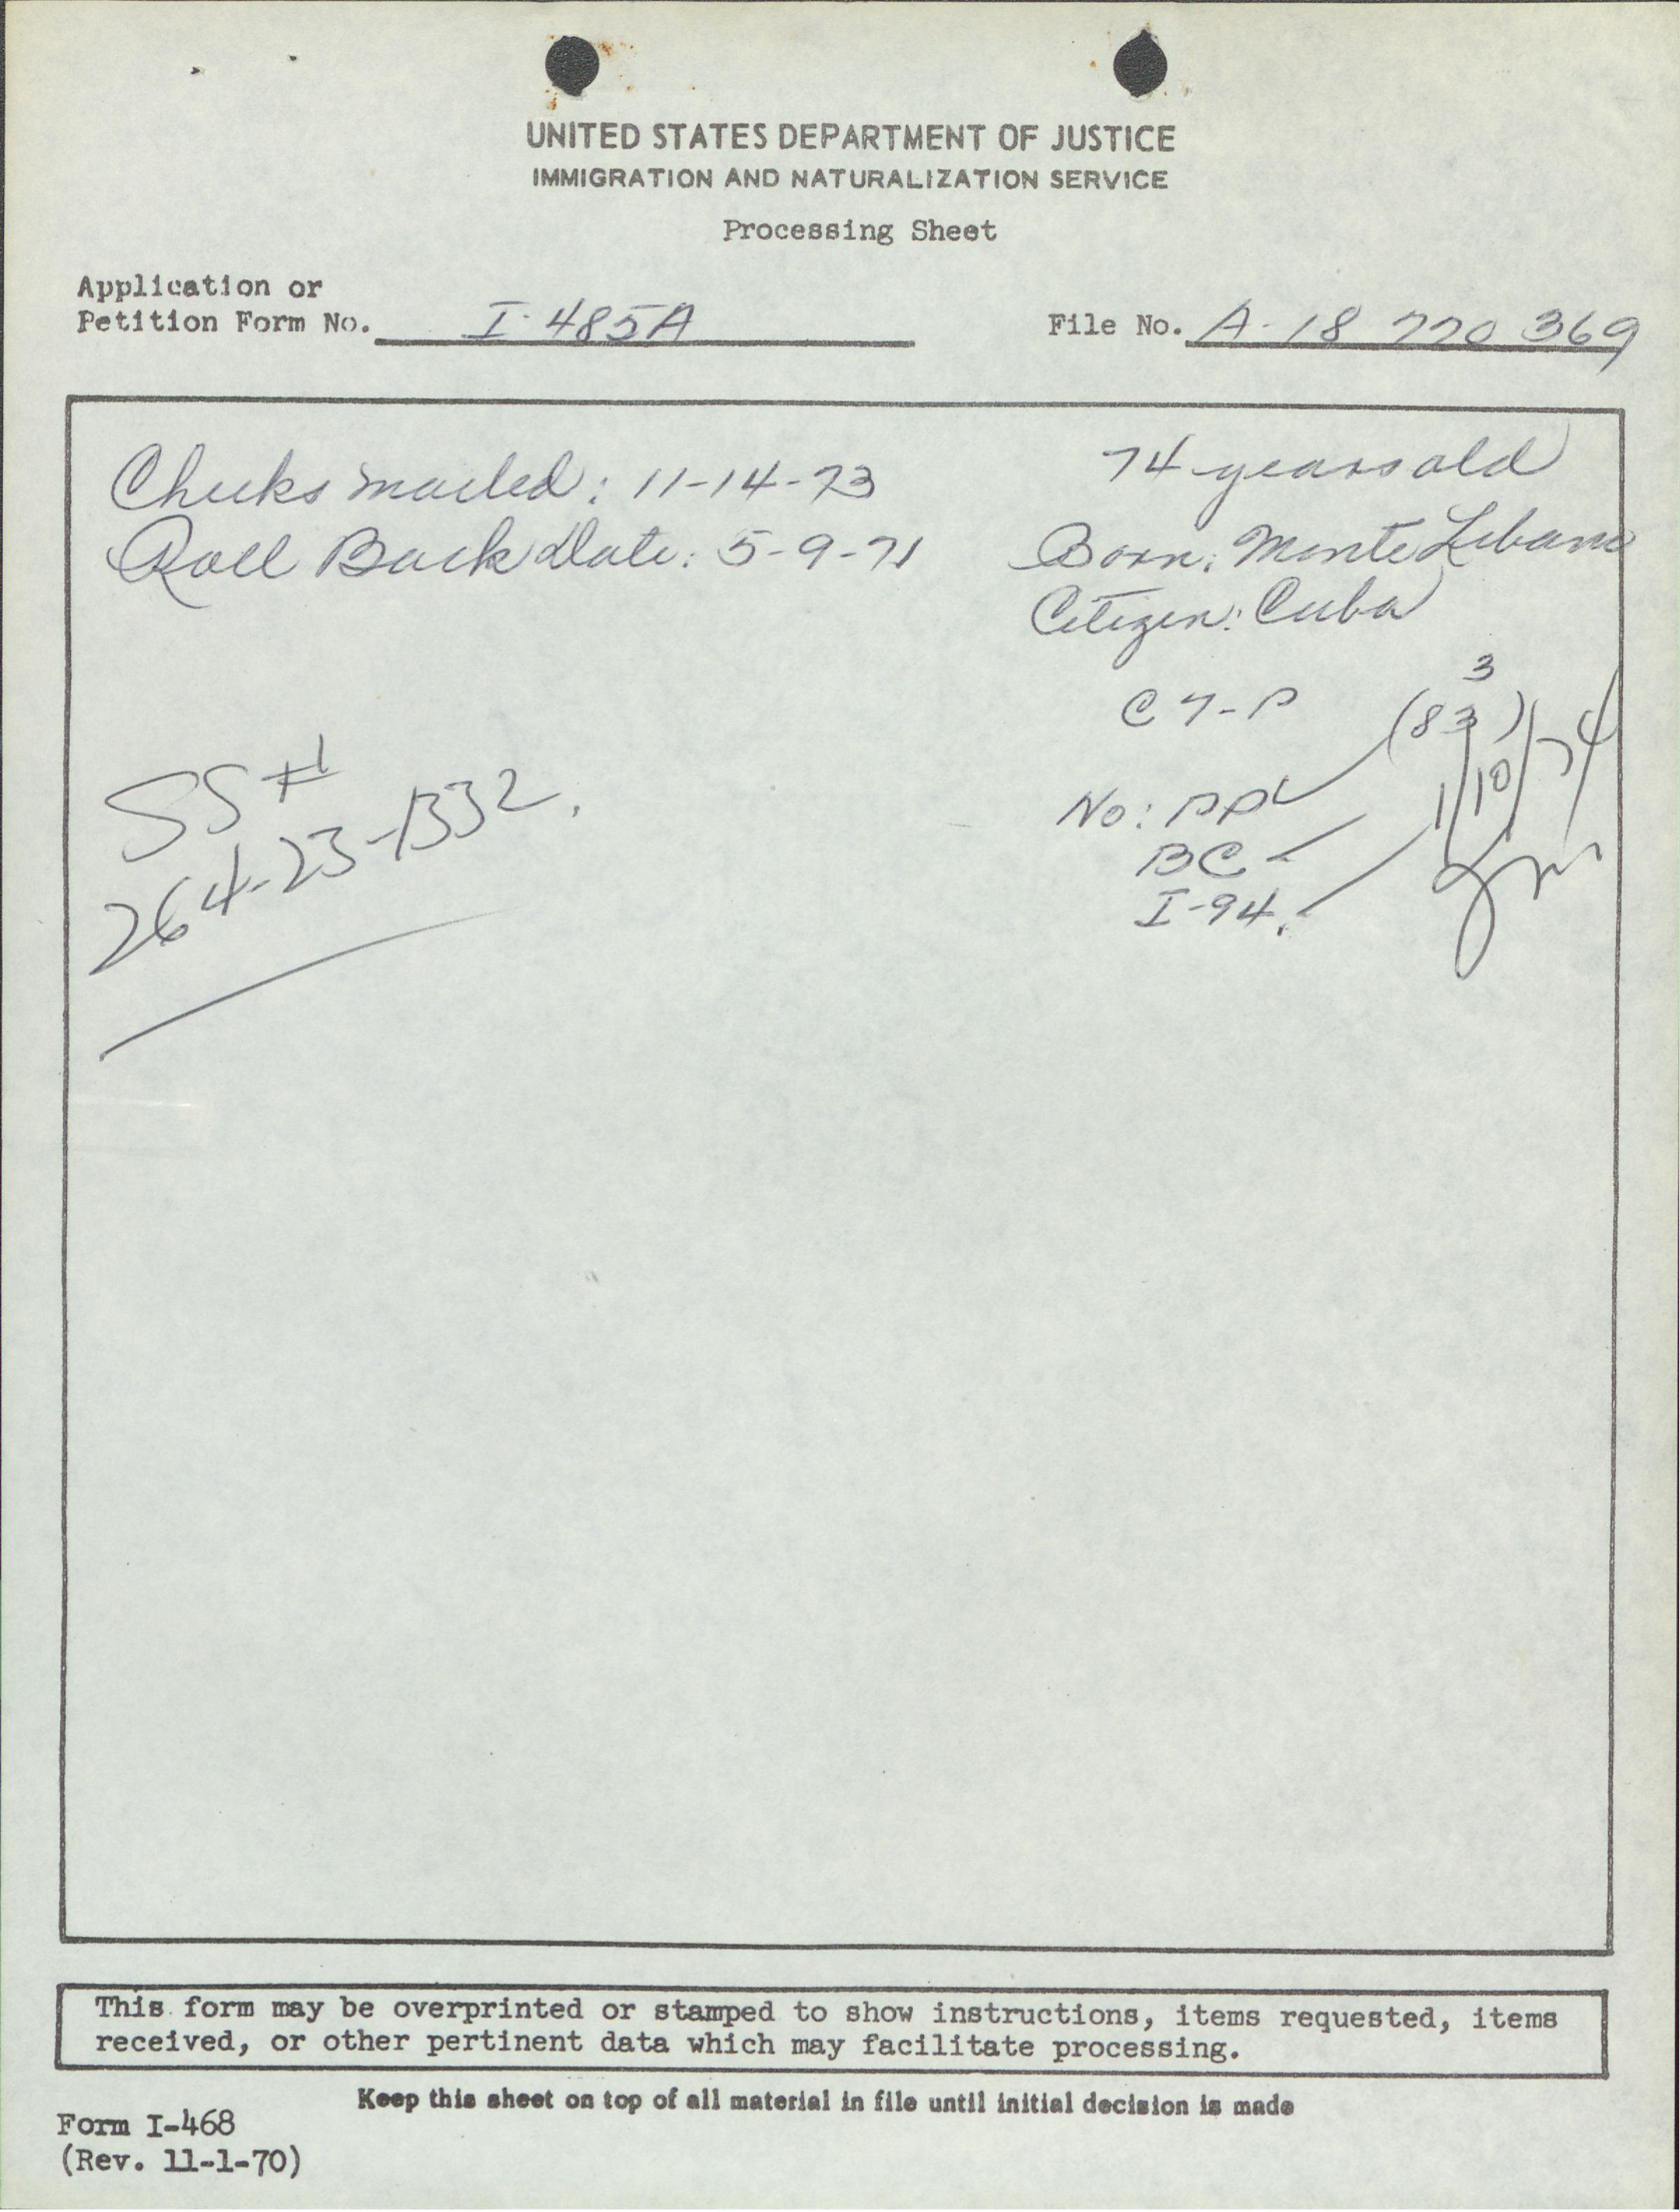 UNITED STATES DEPARTMENT OF JUSTICE
IMMIGRATION AND NATURALIZATION SERVICE
Processing Sheet
Application or
Petition Form No. I-485A
File No. A-18 770 369
Checks mailed: 11-14-73
Roll Back Date: 5-9-71
74 years old
Born: Monte Libano
Citizen: Cuba
C7-P
(83)
3
1/10/74
No: PP
BC
I-94.
SS #
264-23-1332.
This form may be overprinted or stamped to show instructions, items requested, items
received, or other pertinent data which may facilitate processing.
Keep this sheet on top of all material in file until initial decision is made
Form I-468
(Rev. 11-1-70)